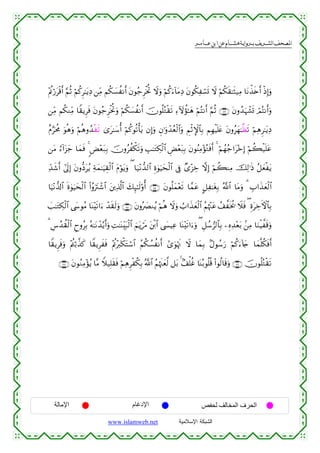 المصحف الشريف برواية هشام عن ابن عامر
وَإِذْ أَخَذْنَا مِيثَـٰقَكُمْ لَا تَسْفِكُونَ دِمَآءَكُمْ وَلَا تُخْرِجُونَ أَنفُسَكُم مِّن دِيَـٰرِكُمْ ثُمَّ أَقْرَرْتُمْ
وَأَنتُمْ تَشْهَدُونَ ﴿٨٤﴾ ثُمَّ أَنتُمْ هَـٰٓؤُلَآءِ تَقْتُلُونَ أَنفُسَكُمْ وَتُخْرِجُونَ فَرِيقًا مِّنكُم مِّن
دِيَـٰرِهِمْ تَظَّـٰهَرُونَ عَلَيْهِم بِٱلْإِثْمِ وَٱلْعُدْوَٰنِ وَإِن يَأْتُوكُمْ أُسَـٰرَىٰ تَفْدُوهُمْ وَهُوَ مُحَرَّمٌ
عَلَيْكُمْ إِخْرَاجُهُمْ ۚ أَفَتُؤْمِنُونَ بِبَعْضِ ٱلْكِتَـٰبِ وَتَكْفُرُونَ بِبَعْضٍ ۚ فَمَا جَزَآءُ مَن
يَفْعَلُ ذَٰلِكَ مِنكُمْ إِلَّا خِزْىٌ فِى ٱلْحَيَوٰةِ ٱلدُّنْيَا ۖ وَيَوْمَ ٱلْقِيَـٰمَةِ يُرَدُّونَ إِلَىٰٓ أَشَدِّ
ٱلْعَذَابِ ۗ وَمَا ٱللَّهُ بِغَـٰفِلٍ عَمَّا تَعْمَلُونَ ﴿٨٥﴾ أُو۟لَـٰٓئِكَ ٱلَّذِينَ ٱشْتَرَوُا۟ ٱلْحَيَوٰةَ ٱلدُّنْيَا
بِٱلْـَٔاخِرَةِ ۖ فَلَا يُخَفَّفُ عَنْهُمُ ٱلْعَذَابُ وَلَا هُمْ يُنصَرُونَ ﴿٨٦﴾ وَلَقَدْ ءَاتَيْنَا مُوسَى ٱلْكِتَـٰبَ
وَقَفَّيْنَا مِنۢ بَعْدِهِۦ بِٱلرُّسُلِ ۖ وَءَاتَيْنَا عِيسَى ٱبْنَ مَرْيَمَ ٱلْبَيِّنَـٰتِ وَأَيَّدْنَـٰهُ بِرُوحِ ٱلْقُدُسِ ۗ
أَفَكُلَّمَا جَآءَكُمْ رَسُولٌۢ بِمَا لَا تَهْوَىٰٓ أَنفُسُكُمُ ٱسْتَكْبَرْتُمْ فَفَرِيقًا كَذَّبْتُمْ وَفَرِيقًا
تَقْتُلُونَ ﴿٨٧﴾ وَقَالُوا۟ قُلُوبُنَا غُلْفٌۢ ۚ بَل لَّعَنَهُمُ ٱللَّهُ بِكُفْرِهِمْ فَقَلِيلًا مَّا يُؤْمِنُونَ ﴿٨٨﴾
الحرف المخالف لحفص الإدغام الإمالة
www.islamweb.net الشبكة الإسلامية